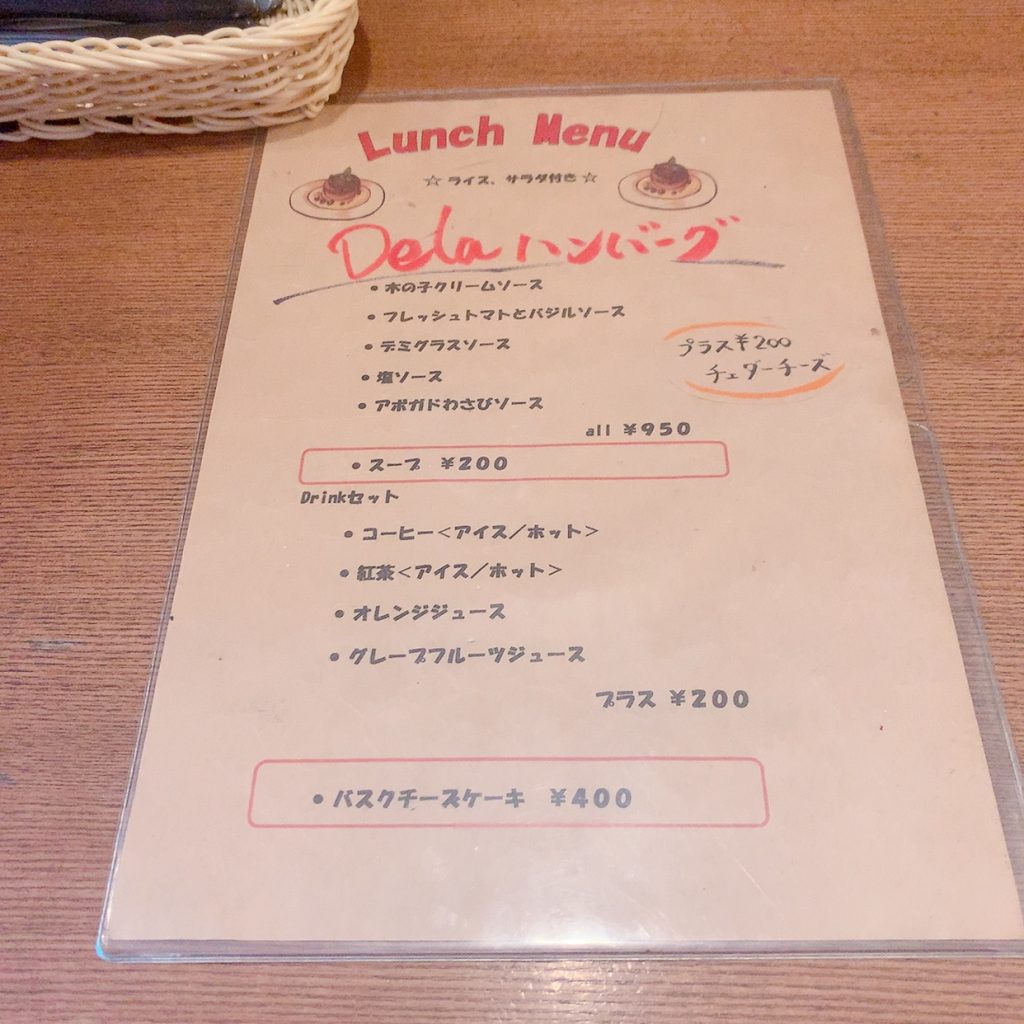 Lunch Menu
☆ ライス、サラダ付き ☆
Dela ハンバーグ
• 木の子クリームソース
• フレッシュトマトとバジルソース
• デミグラスソース
• 塩ソース
• アボガドわさびソース
プラス¥200
チェダーチーズ
all ¥950
• スープ ¥200
Drinkセット
• コーヒー<アイス/ホット>
• 紅茶<アイス/ホット>
• オレンジジュース
• グレープフルーツジュース
プラス ¥200
• バスクチーズケーキ ¥400